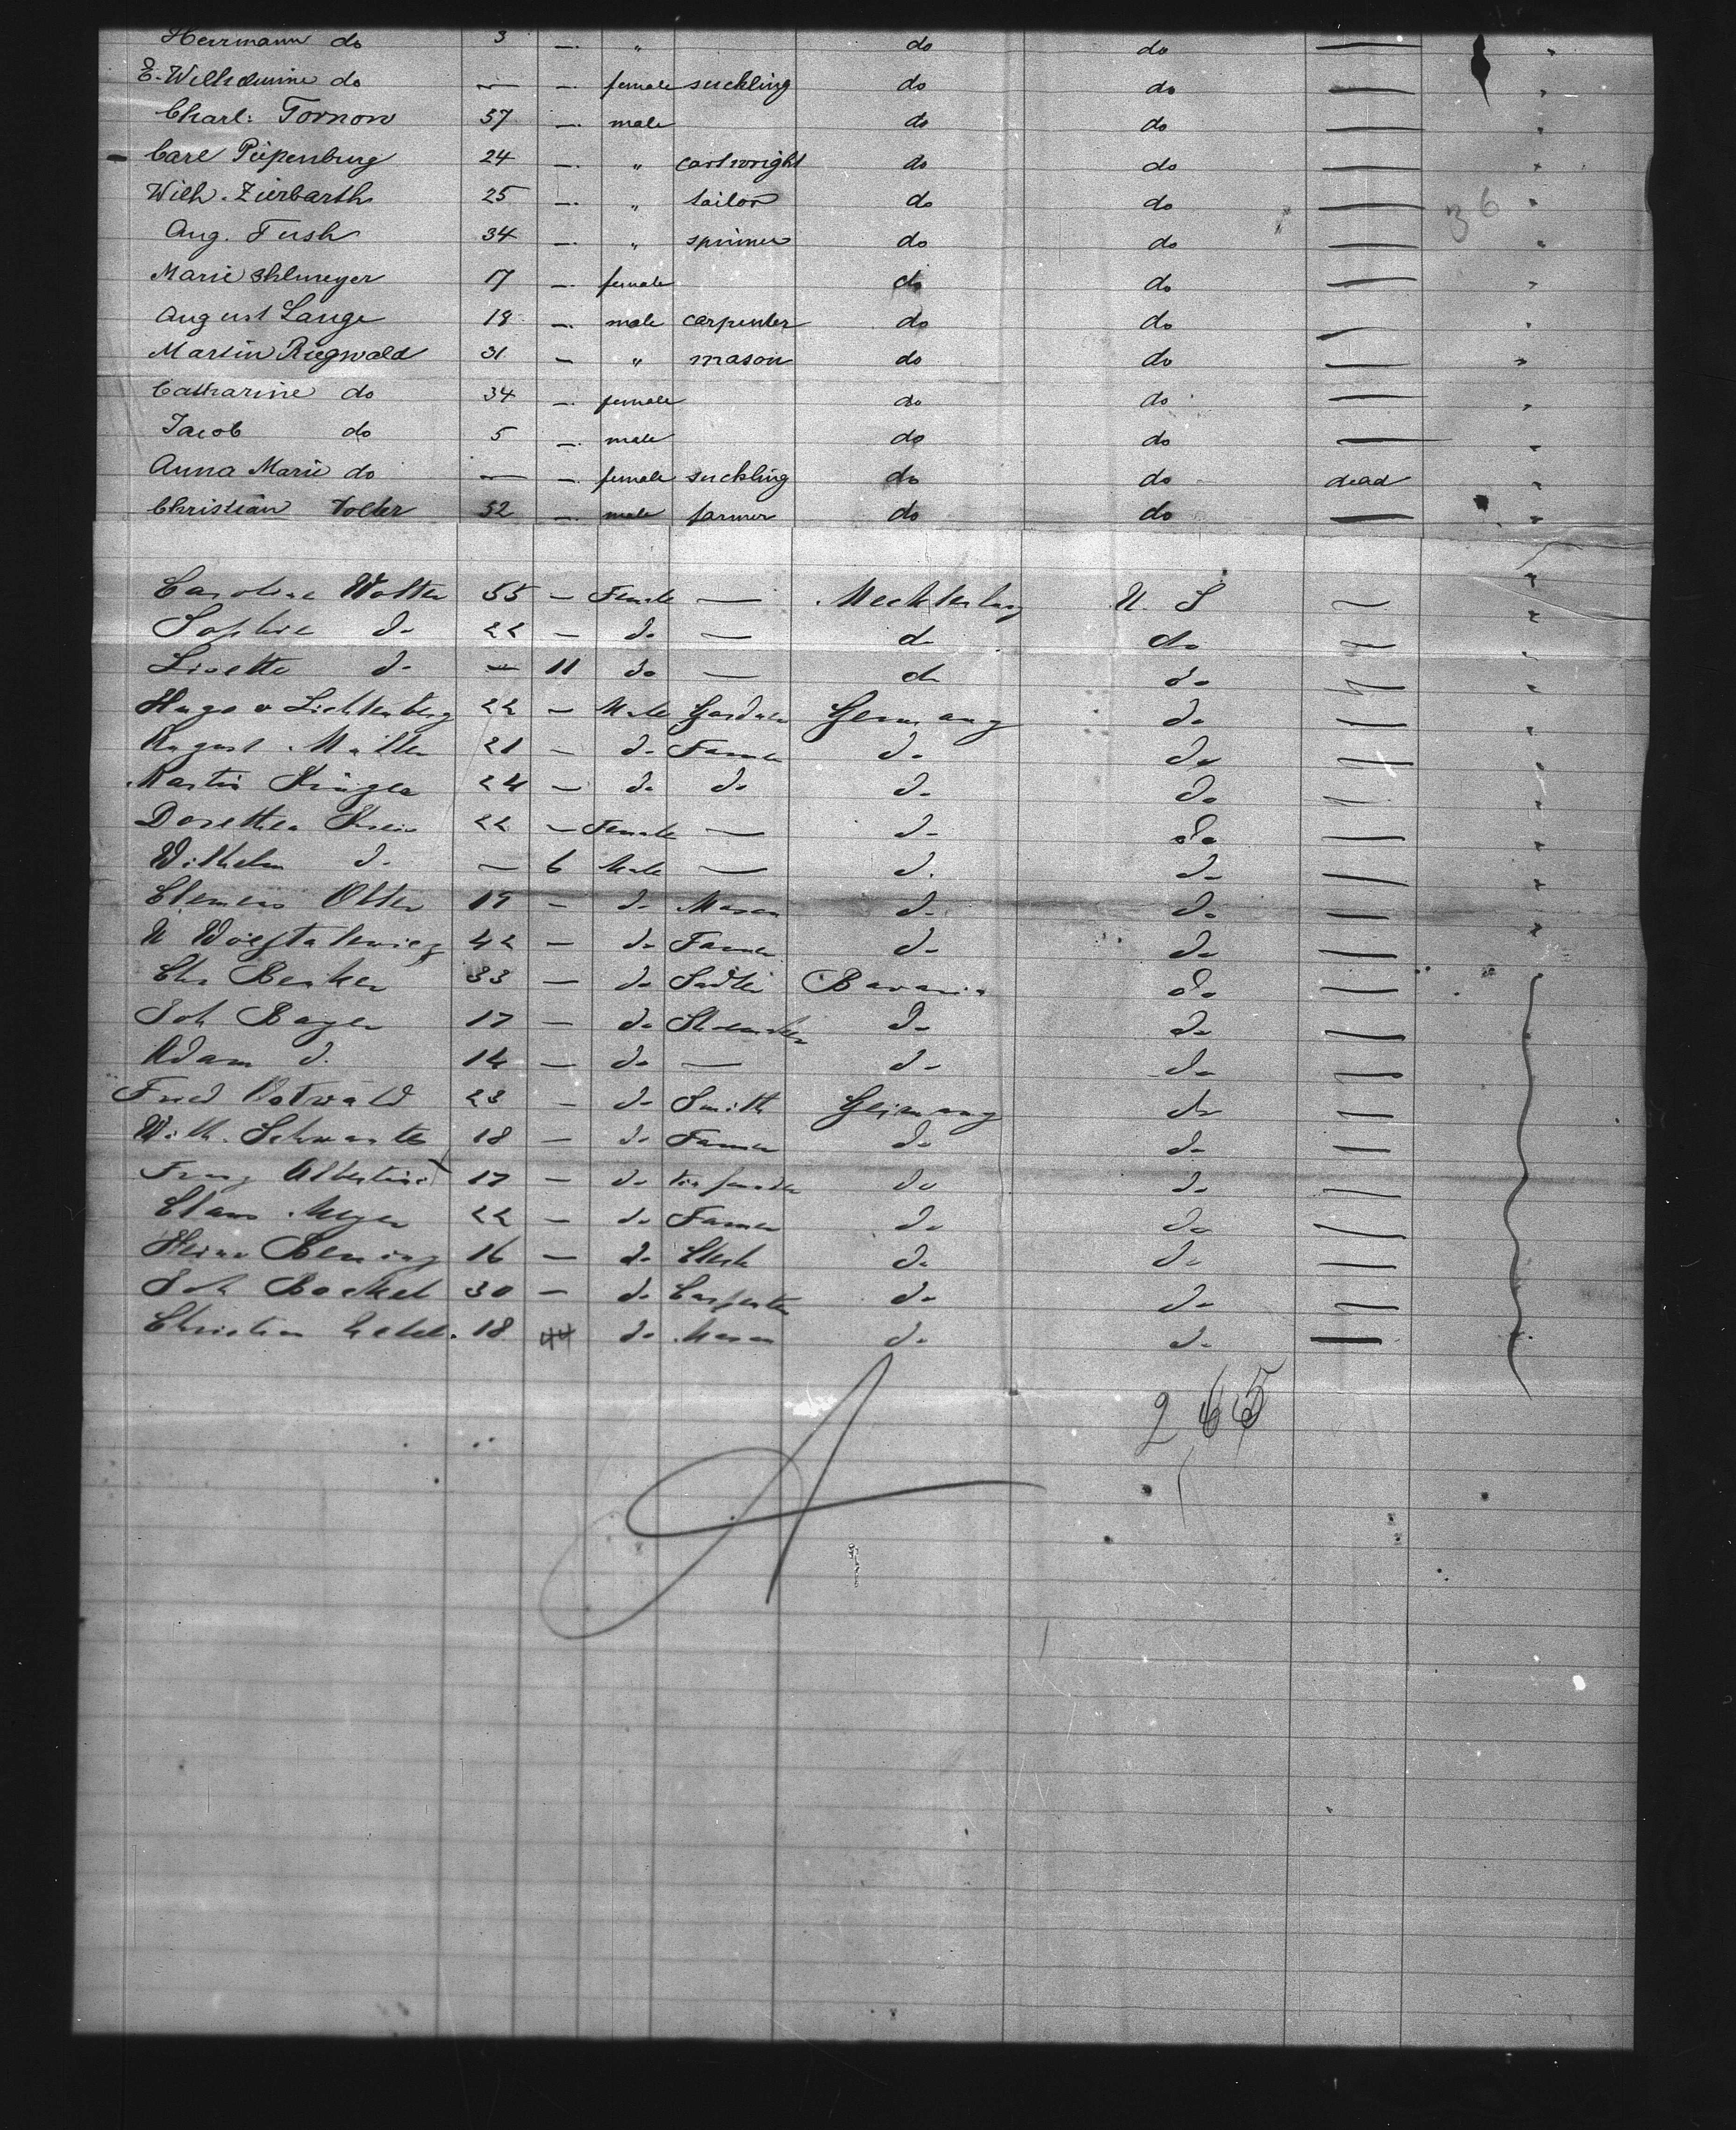 Herrmann do 3 — " do do —
E. Wilhelmine do — — female suckling do do —
Charl: Tornow 57 — male do do —
Carl Piepenburg 24 — " cartwright do do —
Wilh. Zierbarth 25 — " tailor do do — 36
Aug. Tush 34 — " spinner do do —
Marie Ahlmeyer 17 — female do do —
August Lange 18 — male carpenter do do —
Martin Riegwald 31 — " mason do do —
Catharine do 34 — female do do —
Jacob do 5 — male do do —
Anna Marie do — — female suckling do do dead
Christian Wolter 52 — male farmer do do —
Caroline Wolter 55 — Female — Mecklenburg U. S —
Sophie do 22 — do — do do —
Lisette do — 11 do — do do —
Hugo v Lichtenberg 22 — Male Gardner Germany do —
August Müller 21 — do Farmer do do —
Martin Krüger 24 — do do do do —
Dorethea 22 — Female — do do —
Wilhelm do — 6 Male — do do —
Clemens Otter 19 — do Mason do do —
42 — do Farmer do do —
Chr Becker 33 — do Sadler Bavaria do —
Joh Bayer 17 — do do do —
Adam do 14 — do — do do —
Fried Ostwald 23 — do Smith Germany do —
Wilh. Schwartz 18 — do Farmer do do —
Franz 17 — do do do —
Claus Meyer 22 — do Farmer do do —
Heinr Bening 16 — do Clerk do do —
Joh Bockel 30 — do Carpenter do do —
Christian 18 do Mason do do —